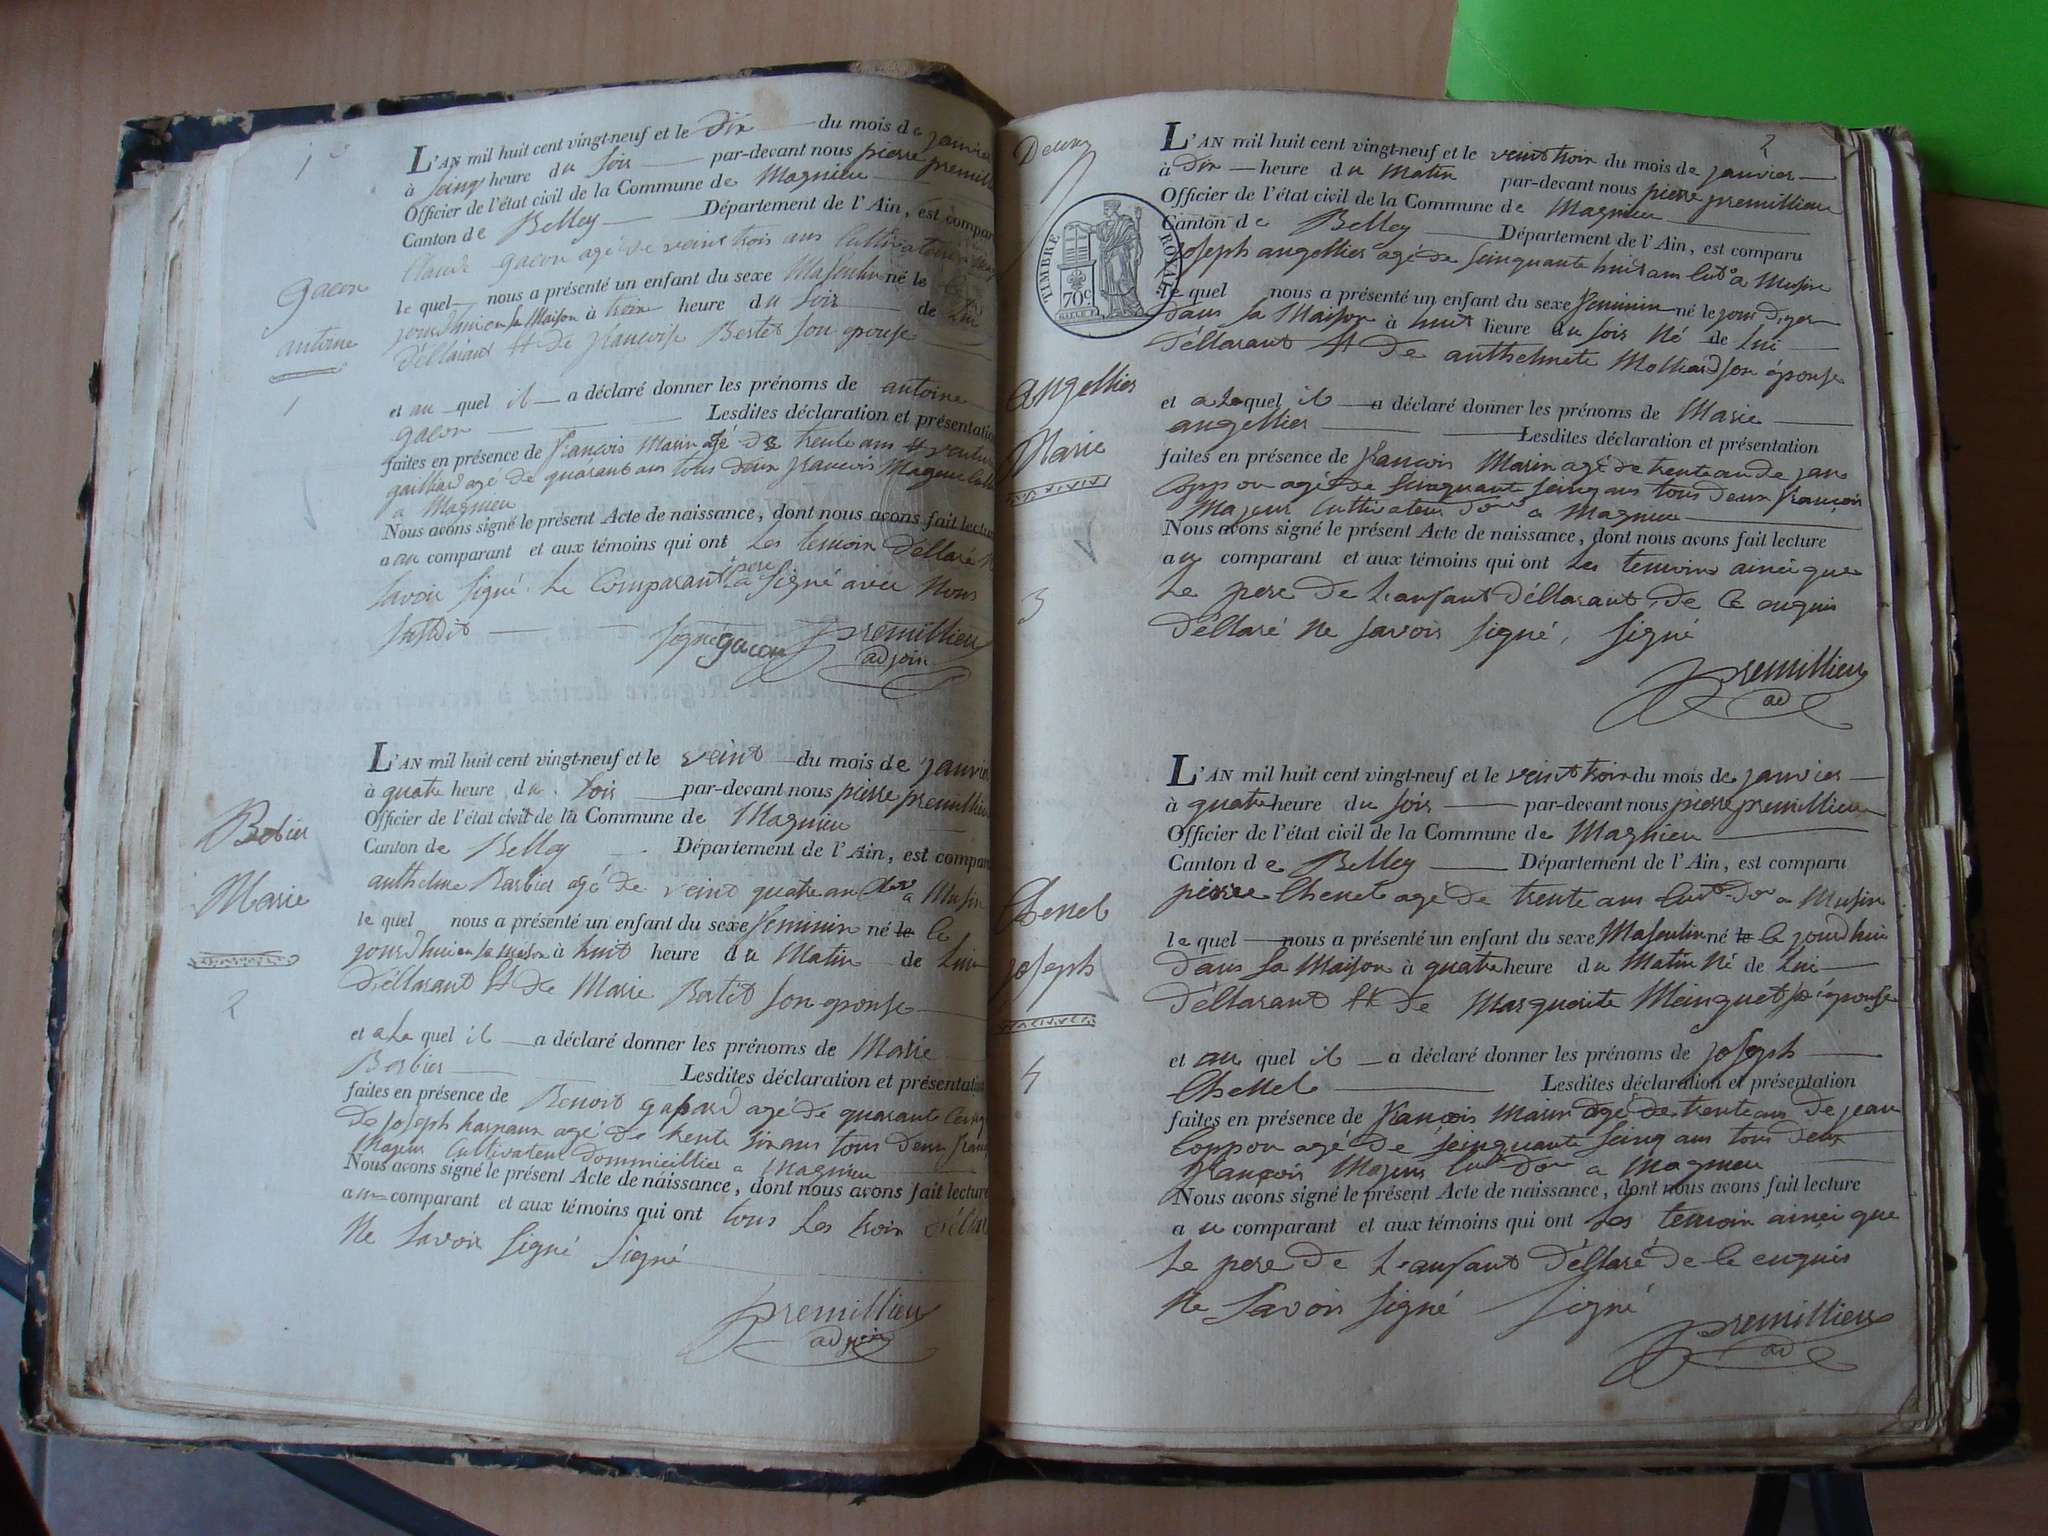 1
L'AN mil huit cent vingt-neuf et le Dix du mois de janvier
à Seinq heure du Soir par-devant nous pierre premillieu
Officier de l'état civil de la Commune de Magnieu
Canton de Belley Département de l'Ain, est comparu
Claude gacon agé de veint trois ans Cultivateur
le quel nous a présenté un enfant du sexe Masculin né le
jourd'hui en sa Maison à trois heure du Soir de Lui
Déllarant Et de françoise Bertet Son epouse
gacon
antoine
1
et au quel il a déclaré donner les prénoms de antoine
gacon Lesdites déclaration et présentation
faites en présence de francois Marin agé de trente ans et
gaillard agé de quarant ans tous deux francois Mageur
a Magnieu
Nous avons signé le présent Acte de naissance, dont nous avons fait lecture
a au comparant et aux témoins qui ont Les temoin Déllaré
Savoir Signé Le Comparant pere a Signé avec Nous
Susdit Signé gacon premillieu
adjoin
L'AN mil huit cent vingt-neuf et le veint du mois de janvier
à quatre heure du Soir par-devant nous pierre premillieu
Officier de l'état civil de la Commune de Magnieu
Canton de Belley Département de l'Ain, est comparu
anthelme Barbier agé de veint quatre an a Musin
le quel nous a présenté un enfant du sexe Feminin né le le
jourd'hui en sa Maison à huit heure du Matin de Lui
Déllarant Et de Marie Bertet Son epouse
Barbier
Marie
2
et a La quel il a déclaré donner les prénoms de Marie
Barbier Lesdites déclaration et présentation
faites en présence de Benoit agé de quarante
De joseph agé de trente Six ans tous Deux
Majeur Cultivateur Dommicillier a Magnieu
Nous avons signé le présent Acte de naissance, dont nous avons fait lecture
au comparant et aux témoins qui ont tous Les trois
Ne Savoir Signé Signé
premillieu
adjoin
2
L'AN mil huit cent vingt-neuf et le veint trois du mois de janvier
à Dix heure du Matin par-devant nous pierre premillieu
Officier de l'état civil de la Commune de Magnieu
Canton de Belley Département de l'Ain, est comparu
joseph angellier agé de Seinquante huit ans Cult. a Musin
le quel nous a présenté un enfant du sexe Feminin né le jour D'yer
Dans Sa Maison à huit heure du Soir Né de Lui
Déllarant Et De anthelmete Molliard Son épouse
TIMBRE ROYAL
70c
angellier
Marie
3
et a La quel il a déclaré donner les prénoms de Marie
angellier Lesdites déclaration et présentation
faites en présence de francois Marin agé de trente an de jean
Coppon agé De Seinquante Seinq ans tous Deux françois
Majeur Cultivateur a Magnieu
Nous avons signé le présent Acte de naissance, dont nous avons fait lecture
au comparant et aux témoins qui ont Les temoins ainci que
Le pere De L'anfant Déllarant, De Ce enquis
Déllaré Ne Savoir Signé, Signé
premillieu
ad
L'AN mil huit cent vingt-neuf et le veint trois du mois de janvier
à quatre heure du Soir par-devant nous pierre premillieu
Officier de l'état civil de la Commune de Magnieu
Canton de Belley Département de l'Ain, est comparu
pierre Chenet agé De trente ans a Musin
le quel nous a présenté un enfant du sexe Masculin né le le jourd'hui
Dans Sa Maison à quatre heure du Matin Né de Lui
Déllarant Et De Marguerite Meinguet Son épouse
Chenet
joseph
4
et au quel il a déclaré donner les prénoms de joseph
Chenet Lesdites déclaration et présentation
faites en présence de francois Marin agé de trente ans De jean
Coppon agé De Seinquante Seinq ans tous deux
françois Majeur a Magnieu
Nous avons signé le présent Acte de naissance, dont nous avons fait lecture
au comparant et aux témoins qui ont Les temoin ainci que
Le pere De L'anfant Déllaré de Ce enquis
Ne Savoir Signé Signé
premillieu
ad